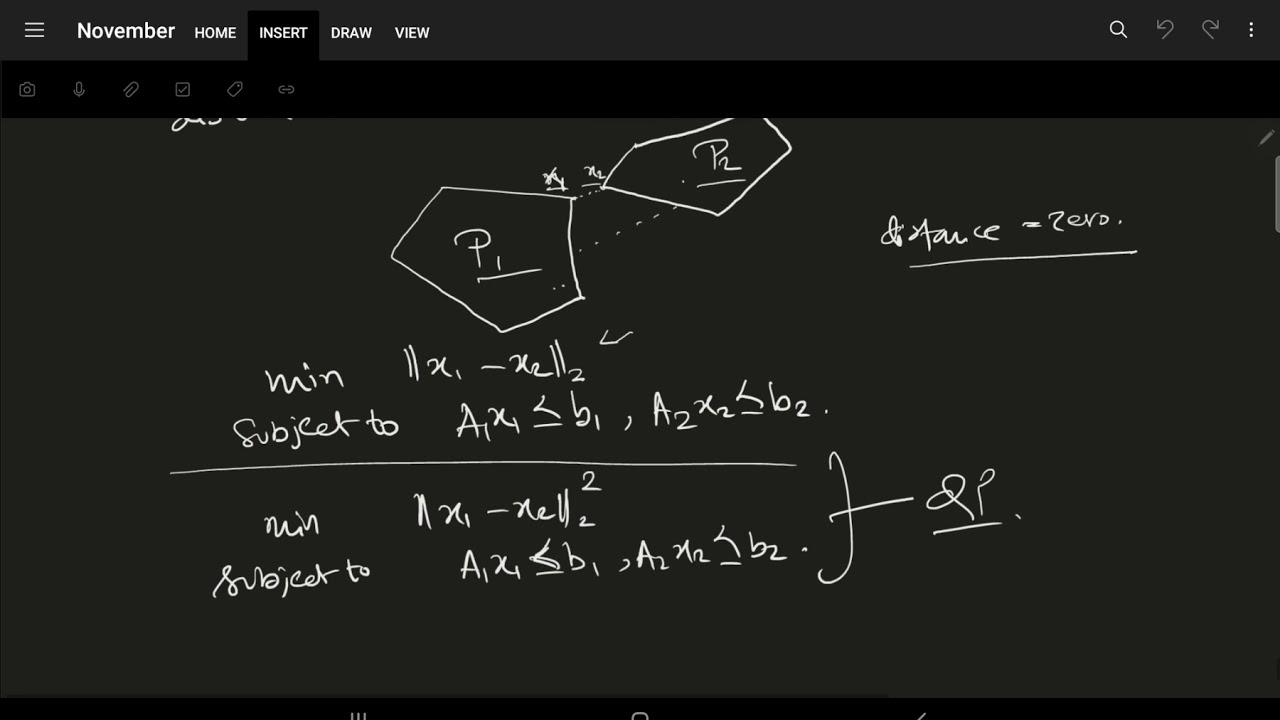 November HOME INSERT DRAW VIEW
x₁ x₂
P₂
P₁
distance = zero.
min ‖x₁ − x₂‖₂
subject to A₁x₁ ≤ b₁ , A₂x₂ ≤ b₂ .
min ‖x₁ − x₂‖₂²
QP .
subject to A₁x₁ ≤ b₁ , A₂x₂ ≤ b₂ .